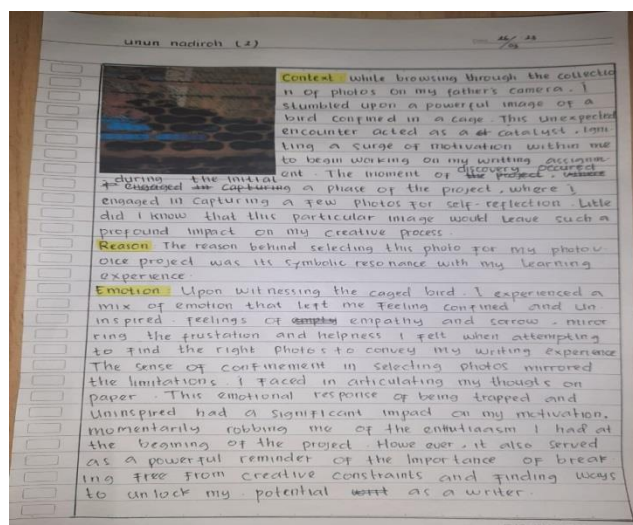 unun nadiroh (2)
22/03 23
Context : while browsing through the collectio
n of photos on my father's camera. I
stumbled upon a powerful image of a
bird confined in a cage. This unexpected
encounter acted as a catalyst, igni
ting a surge of motivation within me
to begin working on my writing assignm
ent. The moment of discovery occured
during the initial
a phase of the project, where I
engaged in capturing a few photos for self-reflection. Little
did I know that this particular image would leave such a
profound impact on my creative process.
Reason : The reason behind selecting this photo for my photov
oice project was its symbolic resonance with my learning
experience.
Emotion : Upon witnessing the caged bird. I experienced a
mix of emotion that left me feeling confined and un
inspired. feelings of empathy and sorrow, mirror
ring the frustation and helpness I felt when attempting
to find the right photos to convey my writing experience
The sense of confinement in selecting photos mirrored
the limitations I faced in articulating my thougts on
paper. This emotional response of being trapped and
uninspired had a significant impact on my motivation,
momentarily robbing me of the enthutiaasm I had at
the begining of the project. Howe ever, it also served
as a powerful reminder of the importance of break
ing free from creative constraints and finding ways
to unlock my potential as a writer.